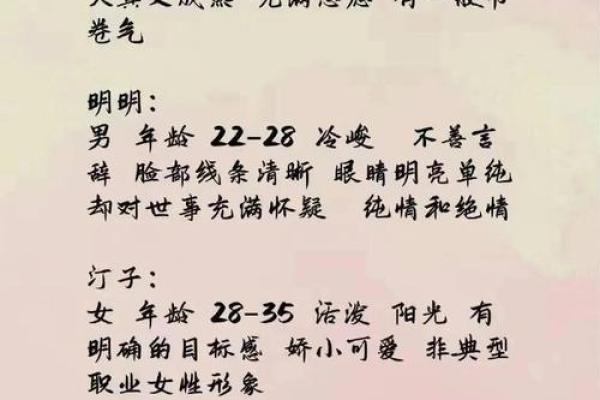 真又成熟 充满
卷气
明明：
男 年龄 22-28 冷峻 不善言
辞 脸部线条清晰 眼睛明亮单纯
却对世事充满怀疑 纯情和绝情
汀子：
女 年龄 28-35 活泼 阳光 有
明确的目标感 娇小可爱 非典型
职业女性形象